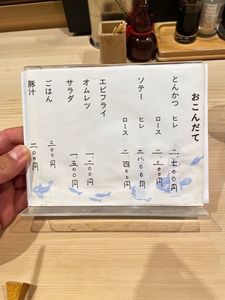 おこんだて
とんかつ ヒレ 二.七〇〇円
ロース
ソテー ヒレ 二.八〇〇円
ロース 二.四〇〇円
エビフライ
オムレツ 一.二〇〇円
サラダ 一.五〇〇円
ごはん 三〇〇円
豚汁 二〇〇円